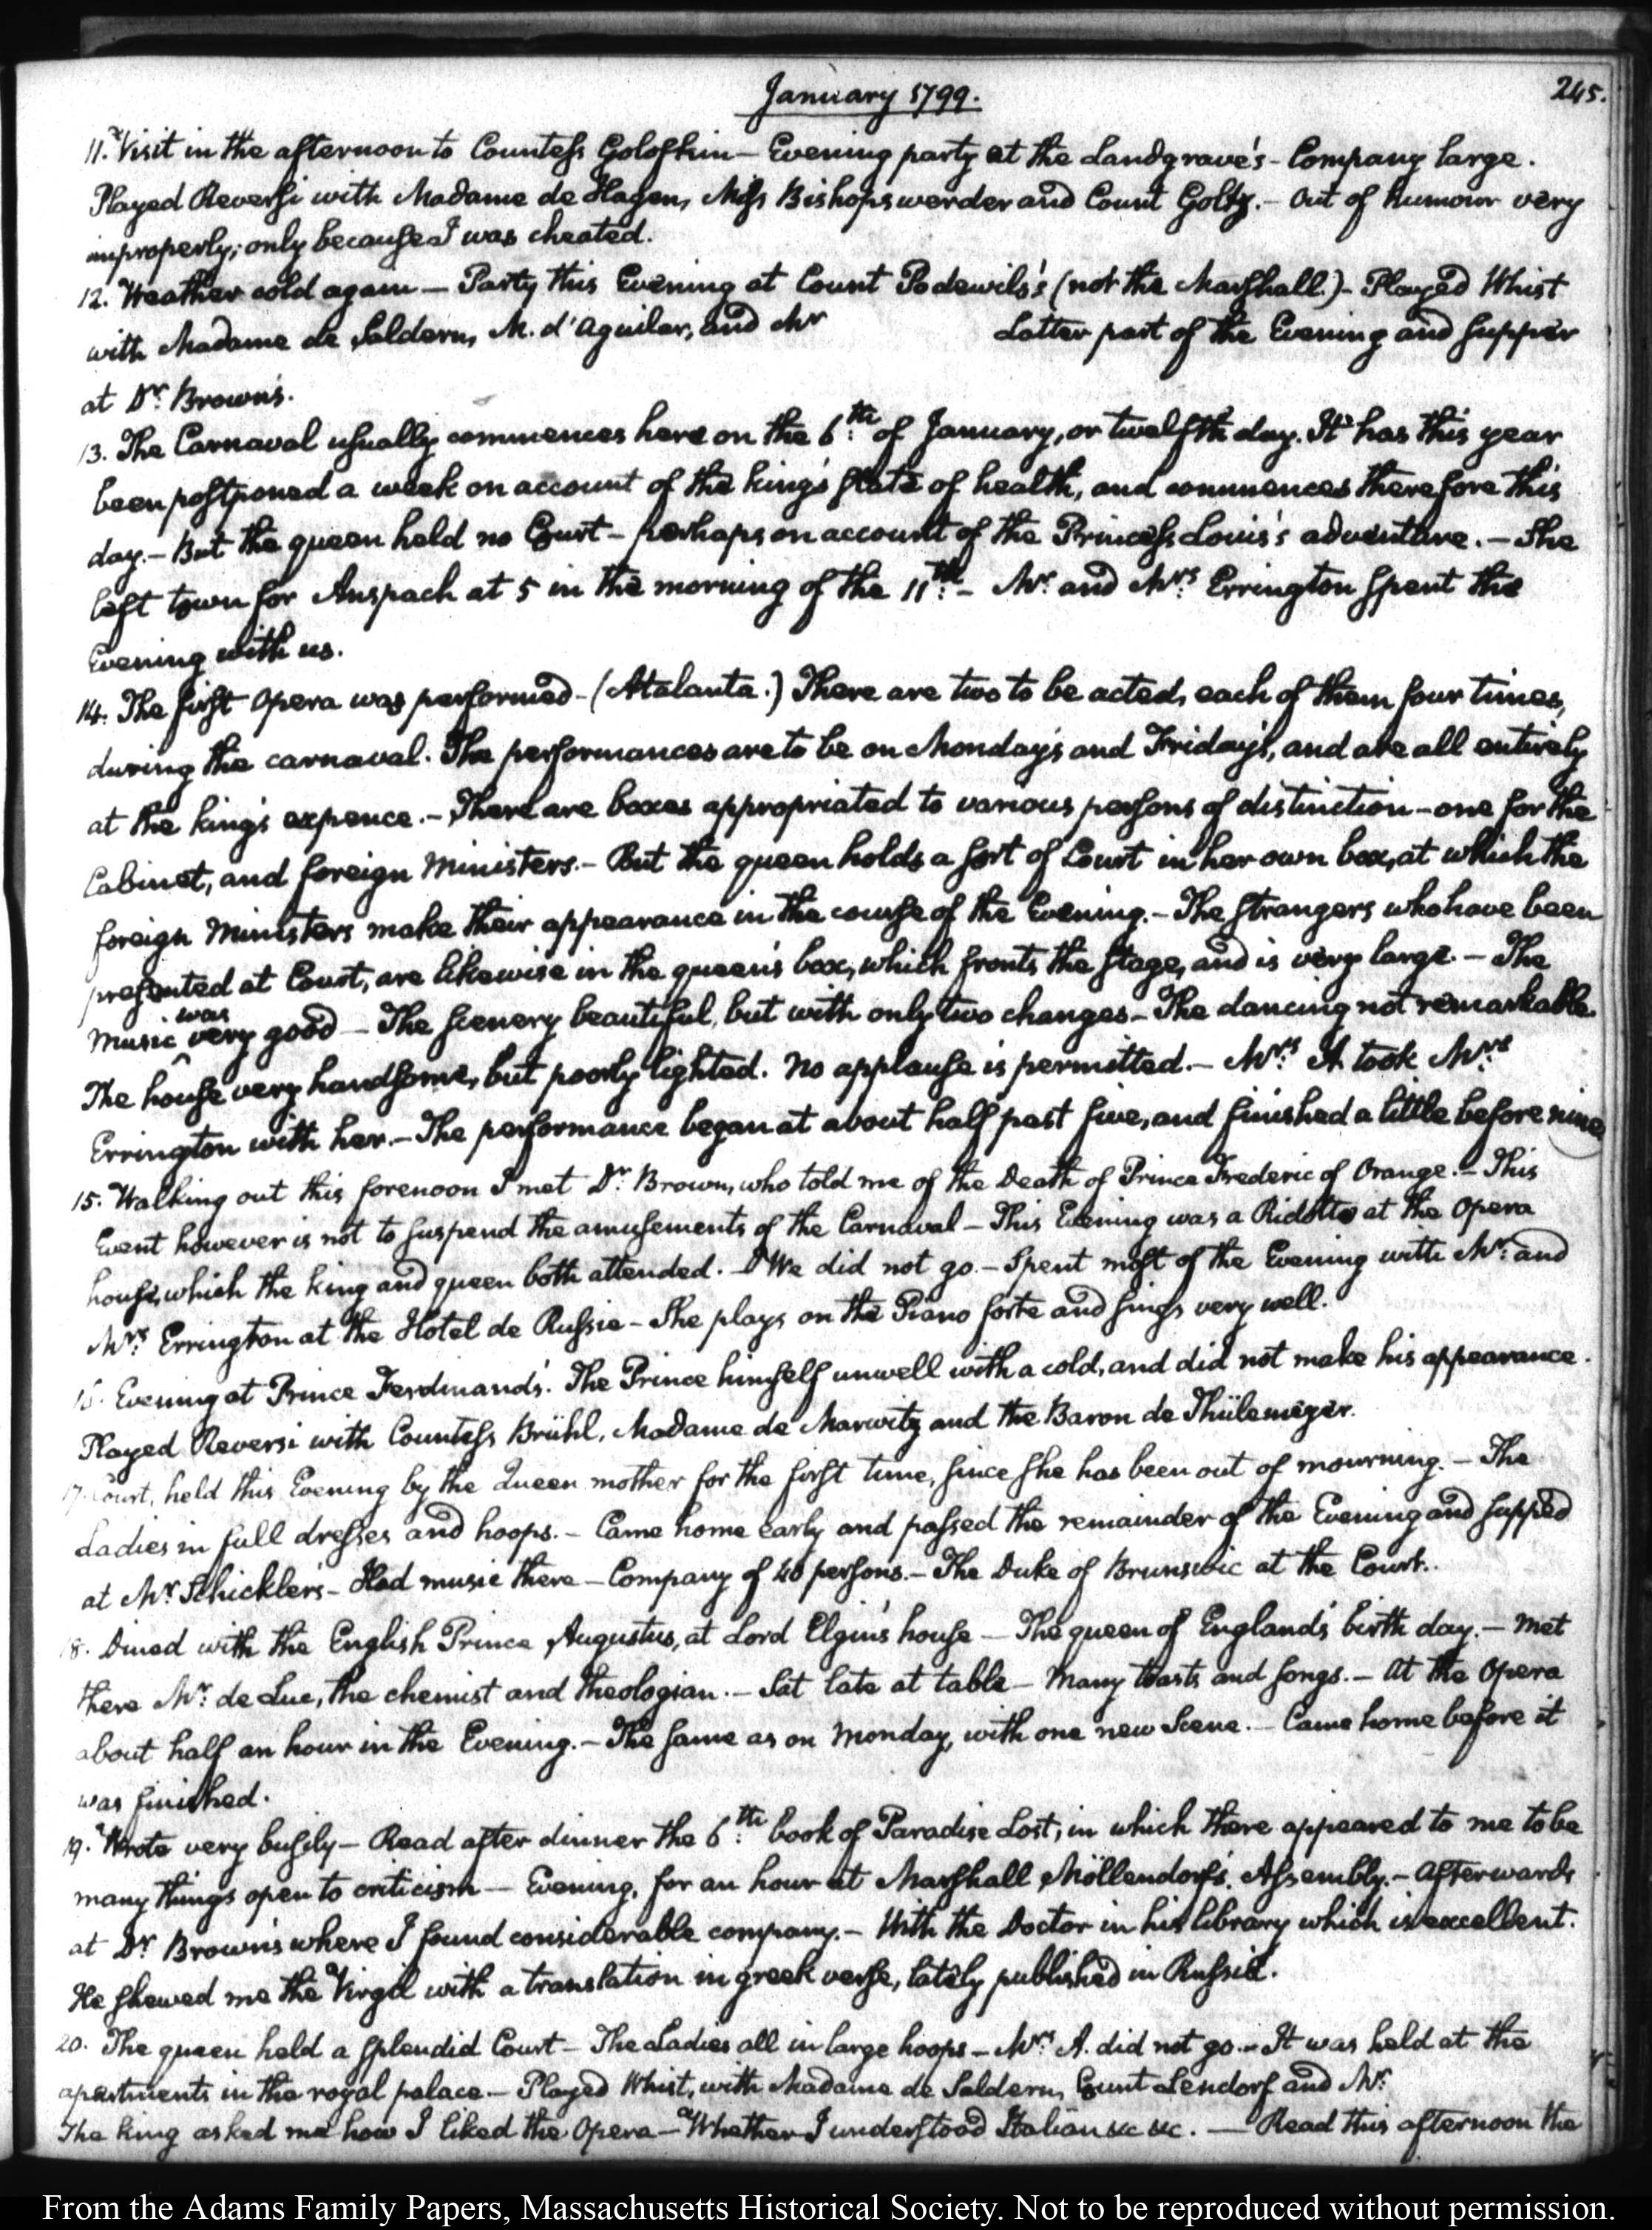 January 1799.
245.
11. Visit in the afternoon to Countess Golofkin — Evening party at the Landgrave's — Company large.
Played Reversi with Madame de Hagen, Miss Bishopswerder and Count Goltz. — Out of humour very
improperly; only because I was cheated.
12. Weather cold again — Party this Evening at Count Podewils's (not the Marshall.) — Played Whist
with Madame de Saldern, M. d'Aguilar, and Mr Latter part of the Evening and supper
at Dr. Brown's.
13. The Carnaval usually commences here on the 6th. of January, or twelfth day. It has this year
been postponed a week on account of the king's state of health, and commences therefore this
day. — But the queen held no Court — perhaps on account of the Princess Louis's adventure. — She
left town for Anspach at 5 in the morning of the 11th. — Mr. and Mrs. Errington spent the
Evening with us.
14. The first Opera was performed — (Atalanta.) There are two to be acted, each of them four times,
during the carnaval. The performances are to be on Monday's and Friday's, and are all entirely
at the king's expence. — There are boxes appropriated to various persons of distinction — one for the
Cabinet, and foreign Ministers. — But the queen holds a sort of Court in her own box, at which the
foreign Ministers make their appearance in the course of the Evening. — The strangers who have been
presented at Court, are likewise in the queen's box, which fronts the stage, and is very large. — The
music was very good — The scenery beautiful, but with only two changes — The dancing not remarkable.
The house very handsome, but poorly lighted. No applause is permitted. — Mrs. A. took Mrs.
Errington with her. — The performance began at about half past five, and finished a little before nine
15. Walking out this forenoon I met Dr. Brown, who told me of the Death of Prince Frederic of Orange. — This
Event however is not to suspend the amusements of the Carnaval — This Evening was a Ridotto at the Opera
house, which the king and queen both attended. — We did not go. — Spent most of the Evening with Mr. and
Mrs. Errington at the Hotel de Russie — She plays on the Piano forte and sings very well.
16. Evening at Prince Ferdinand's. The Prince himself unwell with a cold, and did not make his appearance.
Played Reversi with Countess Brühl, Madame de Marwitz and the Baron de Thülemeyer.
17. Court, held this Evening by the Queen mother for the first time, since she has been out of mourning. — The
Ladies in full dresses and hoops. — Came home early and passed the remainder of the Evening and supped
at Mr. Schickler's — Had music there — Company of 40 persons. — The Duke of Brunswic at the Court.
18. Dined with the English Prince Augustus, at Lord Elgin's house — The queen of England's birth day. — Met
there Mr. de Luc, the chemist and theologian. — Sat late at table — Many toasts and songs. — At the Opera
about half an hour in the Evening. — The same as on Monday, with one new Scene. — Came home before it
was finished.
19. Wrote very busily — Read after dinner the 6th. book of Paradise Lost, in which there appeared to me to be
many things open to criticism — Evening, for an hour at Marshall Möllendorf's Assembly. — Afterwards
at Dr. Brown's where I found considerable company. — With the Doctor in his library which is excellent.
He shewed me the Virgil with a translation in greek verse, lately published in Russia.
20. The queen held a splendid Court — The Ladies all in large hoops — Mrs. A. did not go. — It was held at the
apartments in the royal palace — Played Whist, with Madame de Saldern, Count Lendorf and Mr.
The king asked me how I liked the Opera — Whether I understood Italian &c &c. — Read this afternoon the
From the Adams Family Papers, Massachusetts Historical Society. Not to be reproduced without permission.